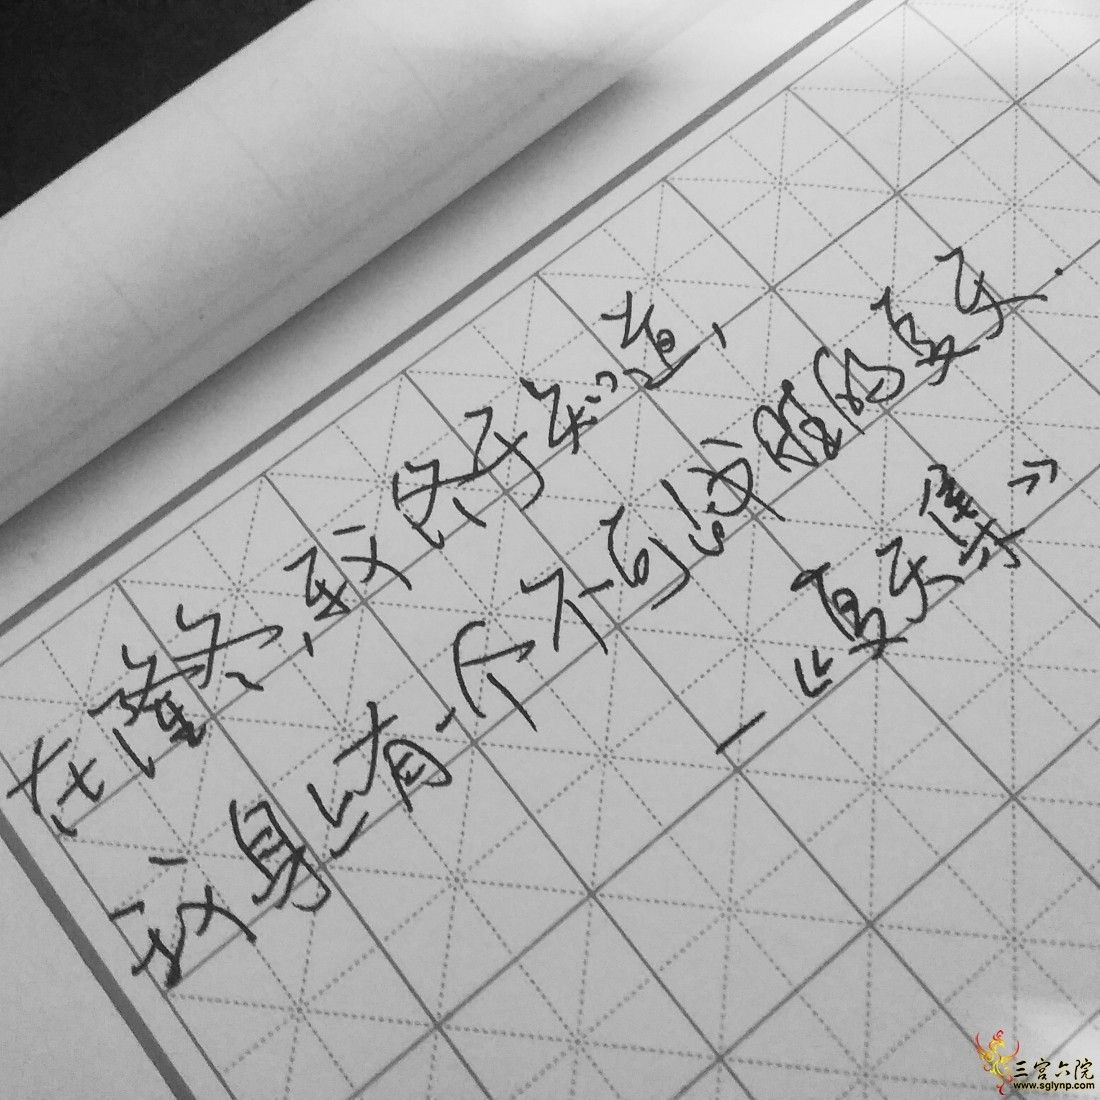 在隆冬,我终于知道,
我身上有一个不可战胜的夏天.
—《夏天集》
三宫六院
www.sglynp.com